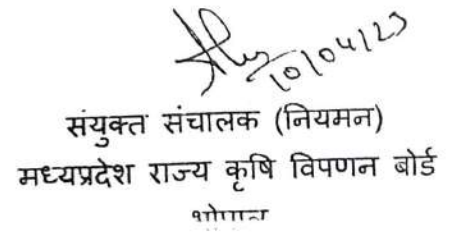 10/04/23
संयुक्त संचालक (नियमन)
मध्यप्रदेश राज्य कृषि विपणन बोर्ड